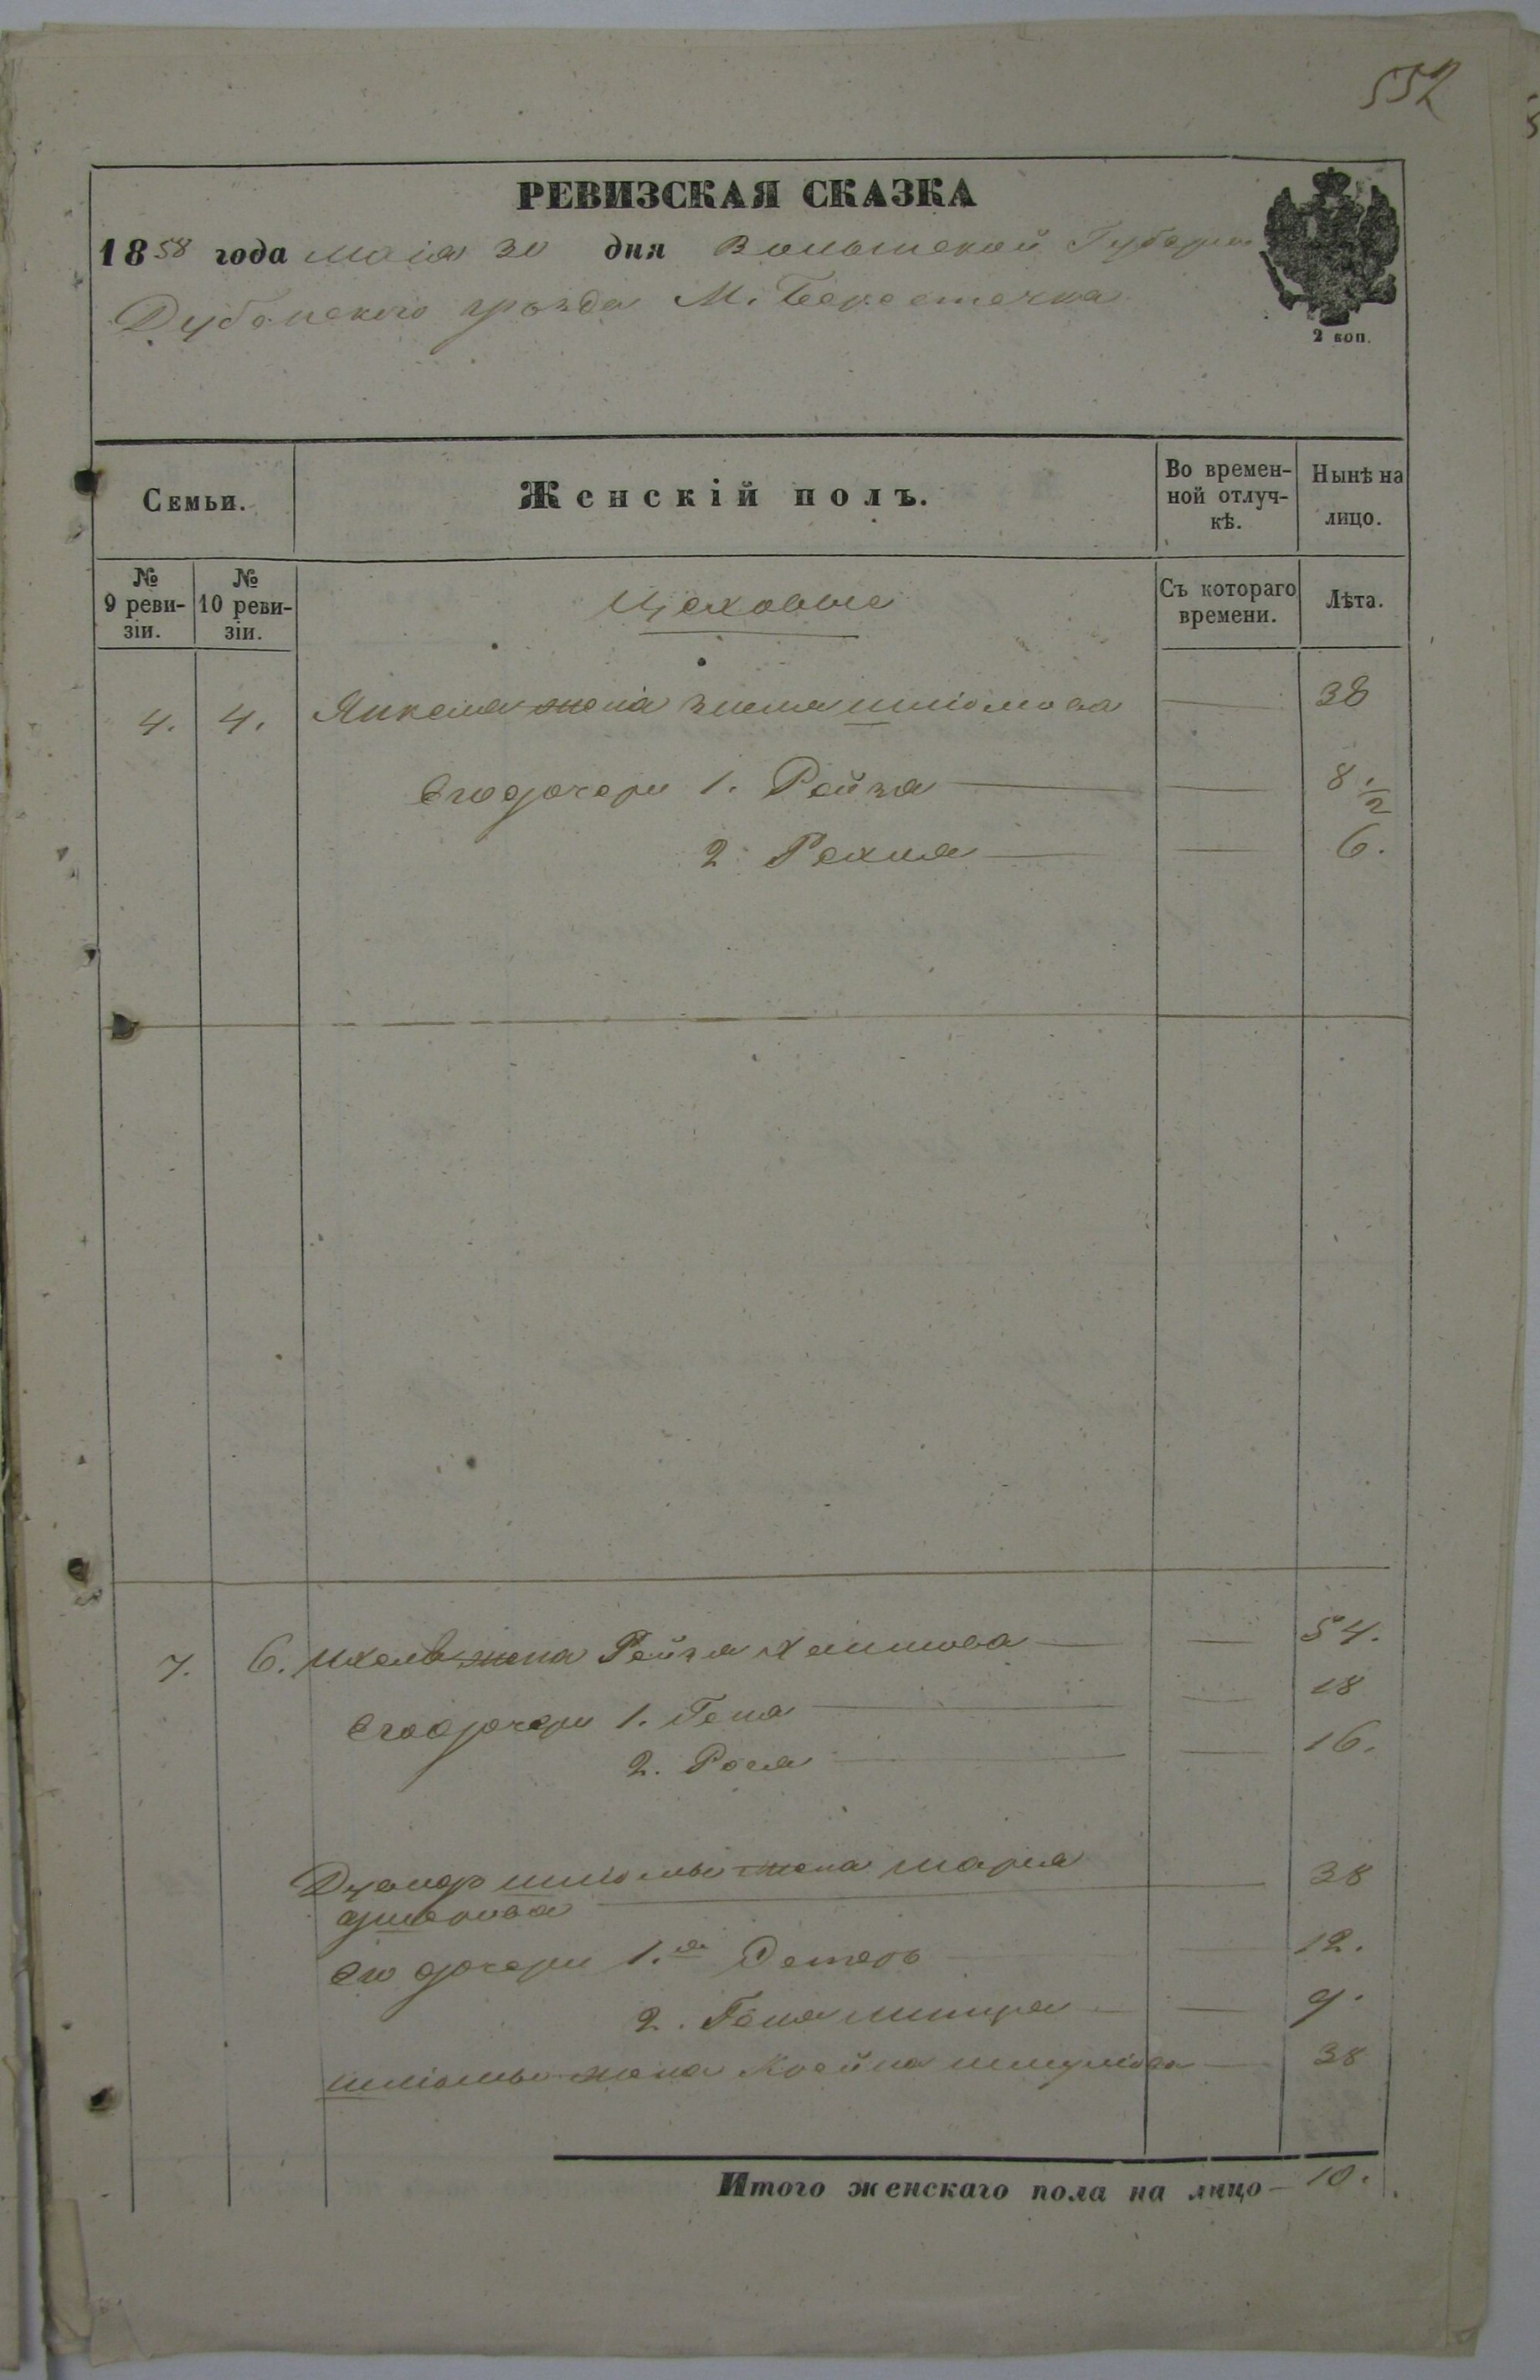 552
РЕВИЗСКАЯ СКАЗКА
1858 года маія 30 дня Волынской Губерніи
Дубенского уѣзда М. Берестечка
2 коп.
Семьи.
Женскій полъ.
Во времен-
ной отлуч-
кѣ.
Нынѣ на
лицо.
№
9 реви-
зіи.
№
10 реви-
зіи.
Цеховые
Съ котораго
времени.
Лѣта.
4. 4. Янкеля жена шліомова — 38
Его дочери 1. Рейзя — — 8 1/2
2. Рахля — — 6.
7. 6. жена Рейзя Хаимова — — 54.
Его дочери 1. Геня — — 18
2. Рося — — 16.
шліомы жена — 38
Его дочери 1.я Эстеръ — — 12.
2. Геня — — 9.
шліомы жена Крейна шмуліова — 38
Итого женскаго пола на лицо — 10.